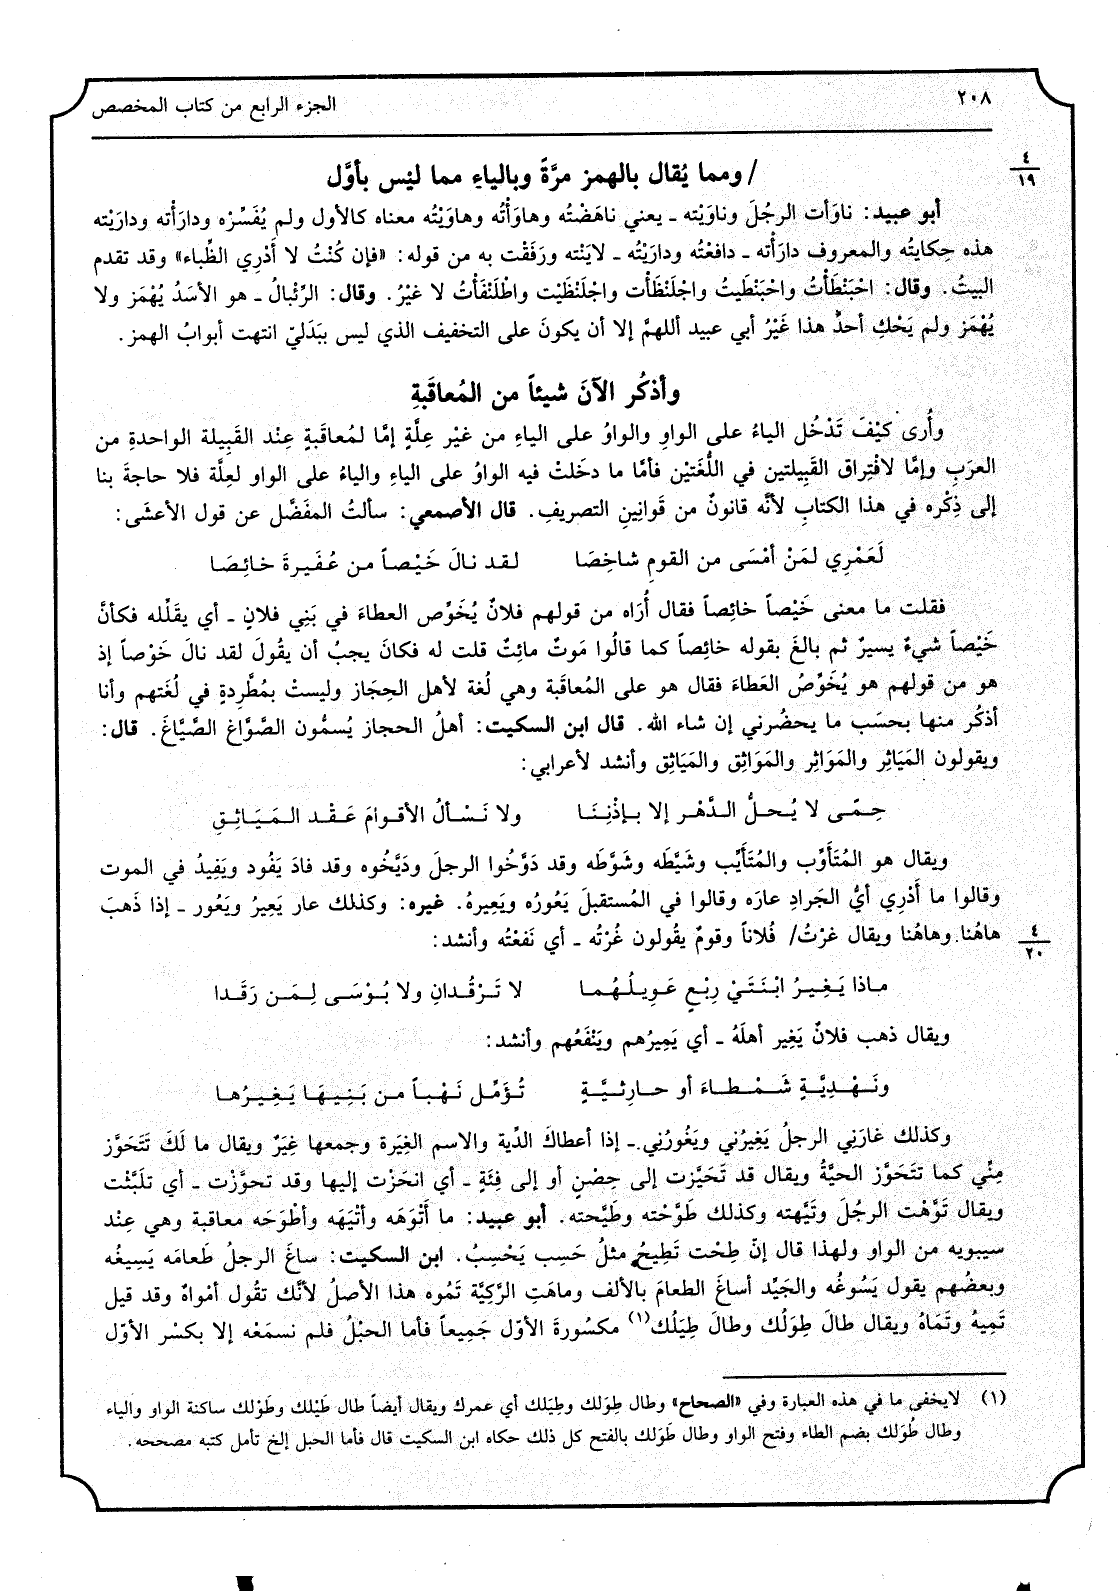 ٢٠٨
الجزء الرابع من كتاب المخصص
٤
١٩
/ ومما يُقال بالهمز مرَّةً وبالياءِ مما ليْس بأوَّل
أبو عبيد: ناوَأت الرجُلَ وناوَيْته ـ يعني ناهَضْتُه وهاوَأْتُه وهاوَيْتُه معناه كالأول ولم يُفَسِّرْه ودارَأْته ودارَيْته
هذه حِكايتُه والمعروف دارَأْته ـ دافعْتُه ودارَيْتُه ـ لايَنْته ورَفَقْت به من قوله: «فإن كُنْتُ لا أَدْرِي الظِّباء» وقد تقدم
البيتُ. وقال: احْبَنْطَأْتُ واحْبَنْطَيتُ واجْلَنْظَأْت واجْلَنْظَيْت واطْلَنْفَأْتُ لا غيْرُ. وقال: الرِّئْبالُ ـ هو الأسَدُ يُهْمَز ولا
يُهْمَز ولم يَحْكِ أحدٌ هذا غَيْرُ أبي عبيد أللهمَّ إلا أن يكونَ على التخفيف الذي ليس ببَدَليّ انتهت أبوابُ الهمز.
وأذكُر الآنَ شيئاً من المُعاقَبةِ
وأُرى كيْفَ تَدْخُل الياءُ على الواوِ والواوُ على الياءِ من غيْر عِلَّةٍ إمَّا لمُعاقَبةٍ عِنْد القَبِيلة الواحدةِ من
العرَبِ وإمَّا لافْتِراق القَبِيلتين في اللُّغَتيْن فأمَّا ما دخَلتْ فيه الواوُ على الياءِ والياءُ على الواو لعِلَّة فلا حاجةَ بنا
إلى ذِكْره في هذا الكتابِ لأنَّه قانونٌ من قَوانِينِ التصريفِ. قال الأصمعي: سألتُ المفَضَّل عن قول الأعشَى:
لَعَمْرِي لمَنْ أمْسَى من القومِ شاخِصَا لقد نالَ خَيْصاً من عُفَيرةَ خائِصَا
فقلت ما معنى خَيْصاً خائِصاً فقال أُرَاه من قولهم فلانٌ يُخَوِّص العطاءَ في بَنِي فلانٍ ـ أي يقَلِّله فكأنَّ
خَيْصاً شيءٌ يسيرٌ ثم بالغَ بقوله خائِصاً كما قالُوا مَوتٌ مائِتٌ قلت له فكانَ يجبُ أن يقُولَ لقد نالَ خَوْصاً إذ
هو من قولهم هو يُخَوِّصُ العَطاءَ فقال هو على المُعاقَبة وهي لُغة لأهل الحِجَاز وليستْ بمُطَّرِدةٍ في لُغَتهم وأنا
أذكُر منها بحسَب ما يحضُرني إن شاء الله. قال ابن السكيت: أهلُ الحجاز يُسمُّون الصَّوَّاغ الصَّيَّاغَ. قال:
ويقولون المَيَاثِر والمَوَاثِر والمَوَاثِق والمَيَاثِق وأنشد لأعرابي:
حِمًى لا يُحلُّ الدَّهْر إلا بإذْنِنَا ولا نَسْألُ الأقوامَ عَقْد المَيَاثِقِ
ويقال هو المُتَأوِّب والمُتَأيِّب وشَيَّطَه وشَوَّطَه وقد دَوَّخُوا الرجلَ ودَيَّخُوه وقد فادَ يَفُود ويَفِيدُ في الموت
وقالوا ما أَدْرِي أيُّ الجَرادِ عارَه وقالوا في المُستقبلَ يَعُورُه ويَعِيرهُ. غيره: وكذلك عار يَعِيرُ ويَعُور ـ إذا ذَهبَ
هاهُنا وهاهُنا ويقال غرْتُ/ فُلاناً وقومٌ يقُولون غُرْتُه ـ أي نَفعْتُه وأنشد:
٤
٢٠
ماذا يَغِيرُ ابْنَتَيْ رِبْعٍ عَوِيلُهُما لا تَرْقُدانِ ولا بُوْسَى لِمَن رَقَدا
ويقال ذهب فلانٌ يَغِير أهلَهُ ـ أي يَمِيرُهم ويَنْفَعُهم وأنشد:
ونَهْدِيَّةٍ شَمْطاءَ أو حارِثيَّةٍ تُؤَمِّل نَهْباً من بَنِيهَا يَغِيرُها
وكذلك غارَنِي الرجلُ يَغِيرُني ويَغُورُنِي ـ إذا أعطاكَ الدِّية والاسم الغِيَرة وجمعها غِيَرٌ ويقال ما لَكَ تَتَحَوَّز
مِنِّي كما تتَحَوَّز الحيَّةُ ويقال قد تَحَيَّزت إلى حِصْنٍ أو إلى فِئَةٍ ـ أي انحَزْت إليها وقد تحوَّزْت ـ أي تلَبَّثْت
ويقال تَوَّهْت الرجُلَ وتَيَّهته وكذلك طَوَّحْته وطَيَّحته. أبو عبيد: ما أَتْوَهَه وأتْيَهَه وأطْوَحَه معاقبة وهي عِنْد
سيبويه من الواو ولهذا قال إنّ طِحْت تَطِيحُ مثلُ حَسِب يَحْسِبُ. ابن السكيت: ساغَ الرجلُ طَعامَه يَسِيغُه
وبعضُهم يقول يَسُوغُه والجَيِّد أساغَ الطعامَ بالألف وماهَتِ الرَّكِيَّة تَمُوه هذا الأصلُ لأنَّك تقُول أمْواهٌ وقد قيل
تَمِيهُ وتَمَاهُ ويقال طالَ طِوَلُك وطالَ طِيَلُك(١) مكسُورةَ الأوّل جَمِيعاً فأما الحبْلُ فلم نسمَعْه إلا بكسْر الأوّل
(١) لايخفى ما في هذه العبارة وفي «الصحاح» وطال طِوَلك وطِيَلك أي عمرك ويقال أيضاً طال طَيْلك وطَوْلك ساكنة الواو والياء
وطال طُوَلك بضم الطاء وفتح الواو وطال طَوَلك بالفتح كل ذلك حكاه ابن السكيت قال فأما الحبل إلخ تأمل كتبه مصححه.